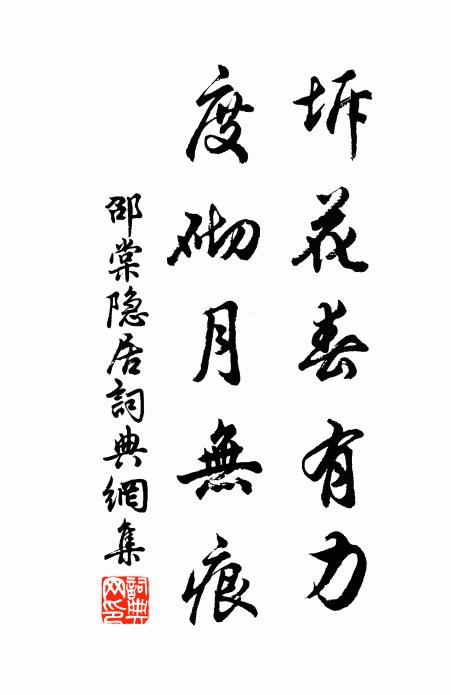 坼花春有力
度砌月無痕
邵棠隐居詞典網集
詞典网印